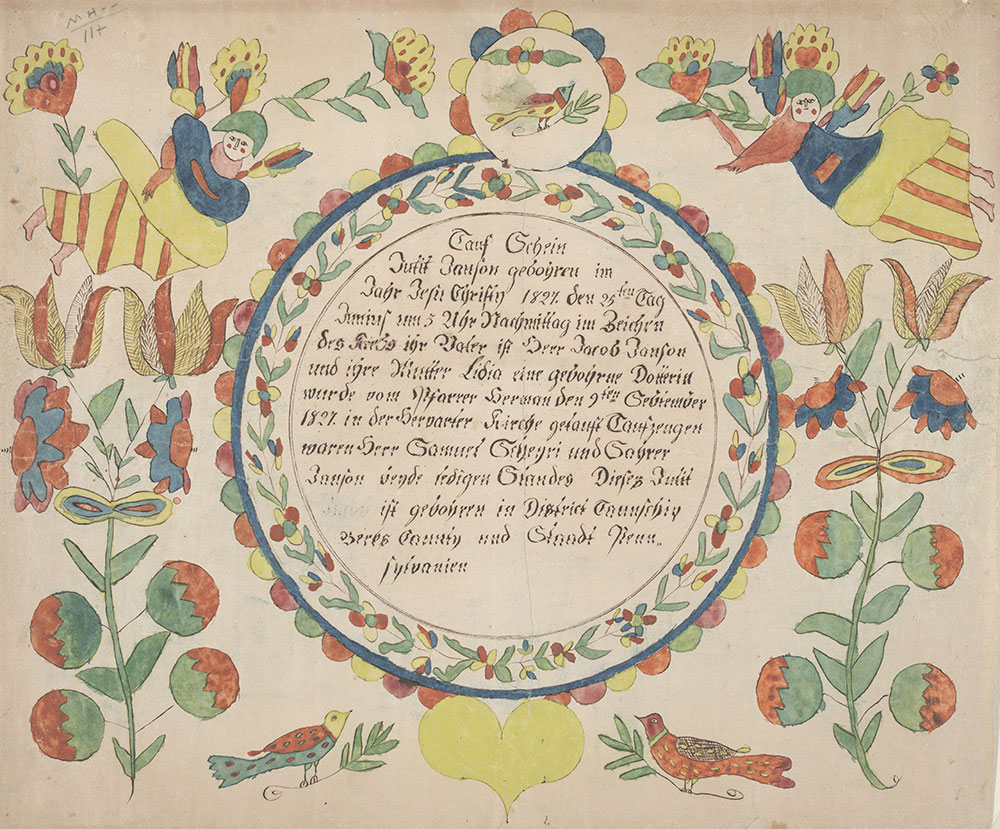 M H --
117
Tauf Schein
Jutit Janson gebohren im
Jahr Jesu Christy 1827. den 25ten Tag
Junius um 5 Uhr Nachmittag im Zeichen
des Krebs ihr Vater ist Herr Jacob Janson
und ihre Mutter Lidia eine gebohrne Dotterin
wurde vom Pfarrer Herman den 9ten September
1827. in der Kirche getauft Taufzeugen
waren Herr Samuel und
Janson beyde ledigen Standes Dieses Jutit
ist gebohren in District Taunschip
Berks Caunty und Staadt Penn„
sylvanien